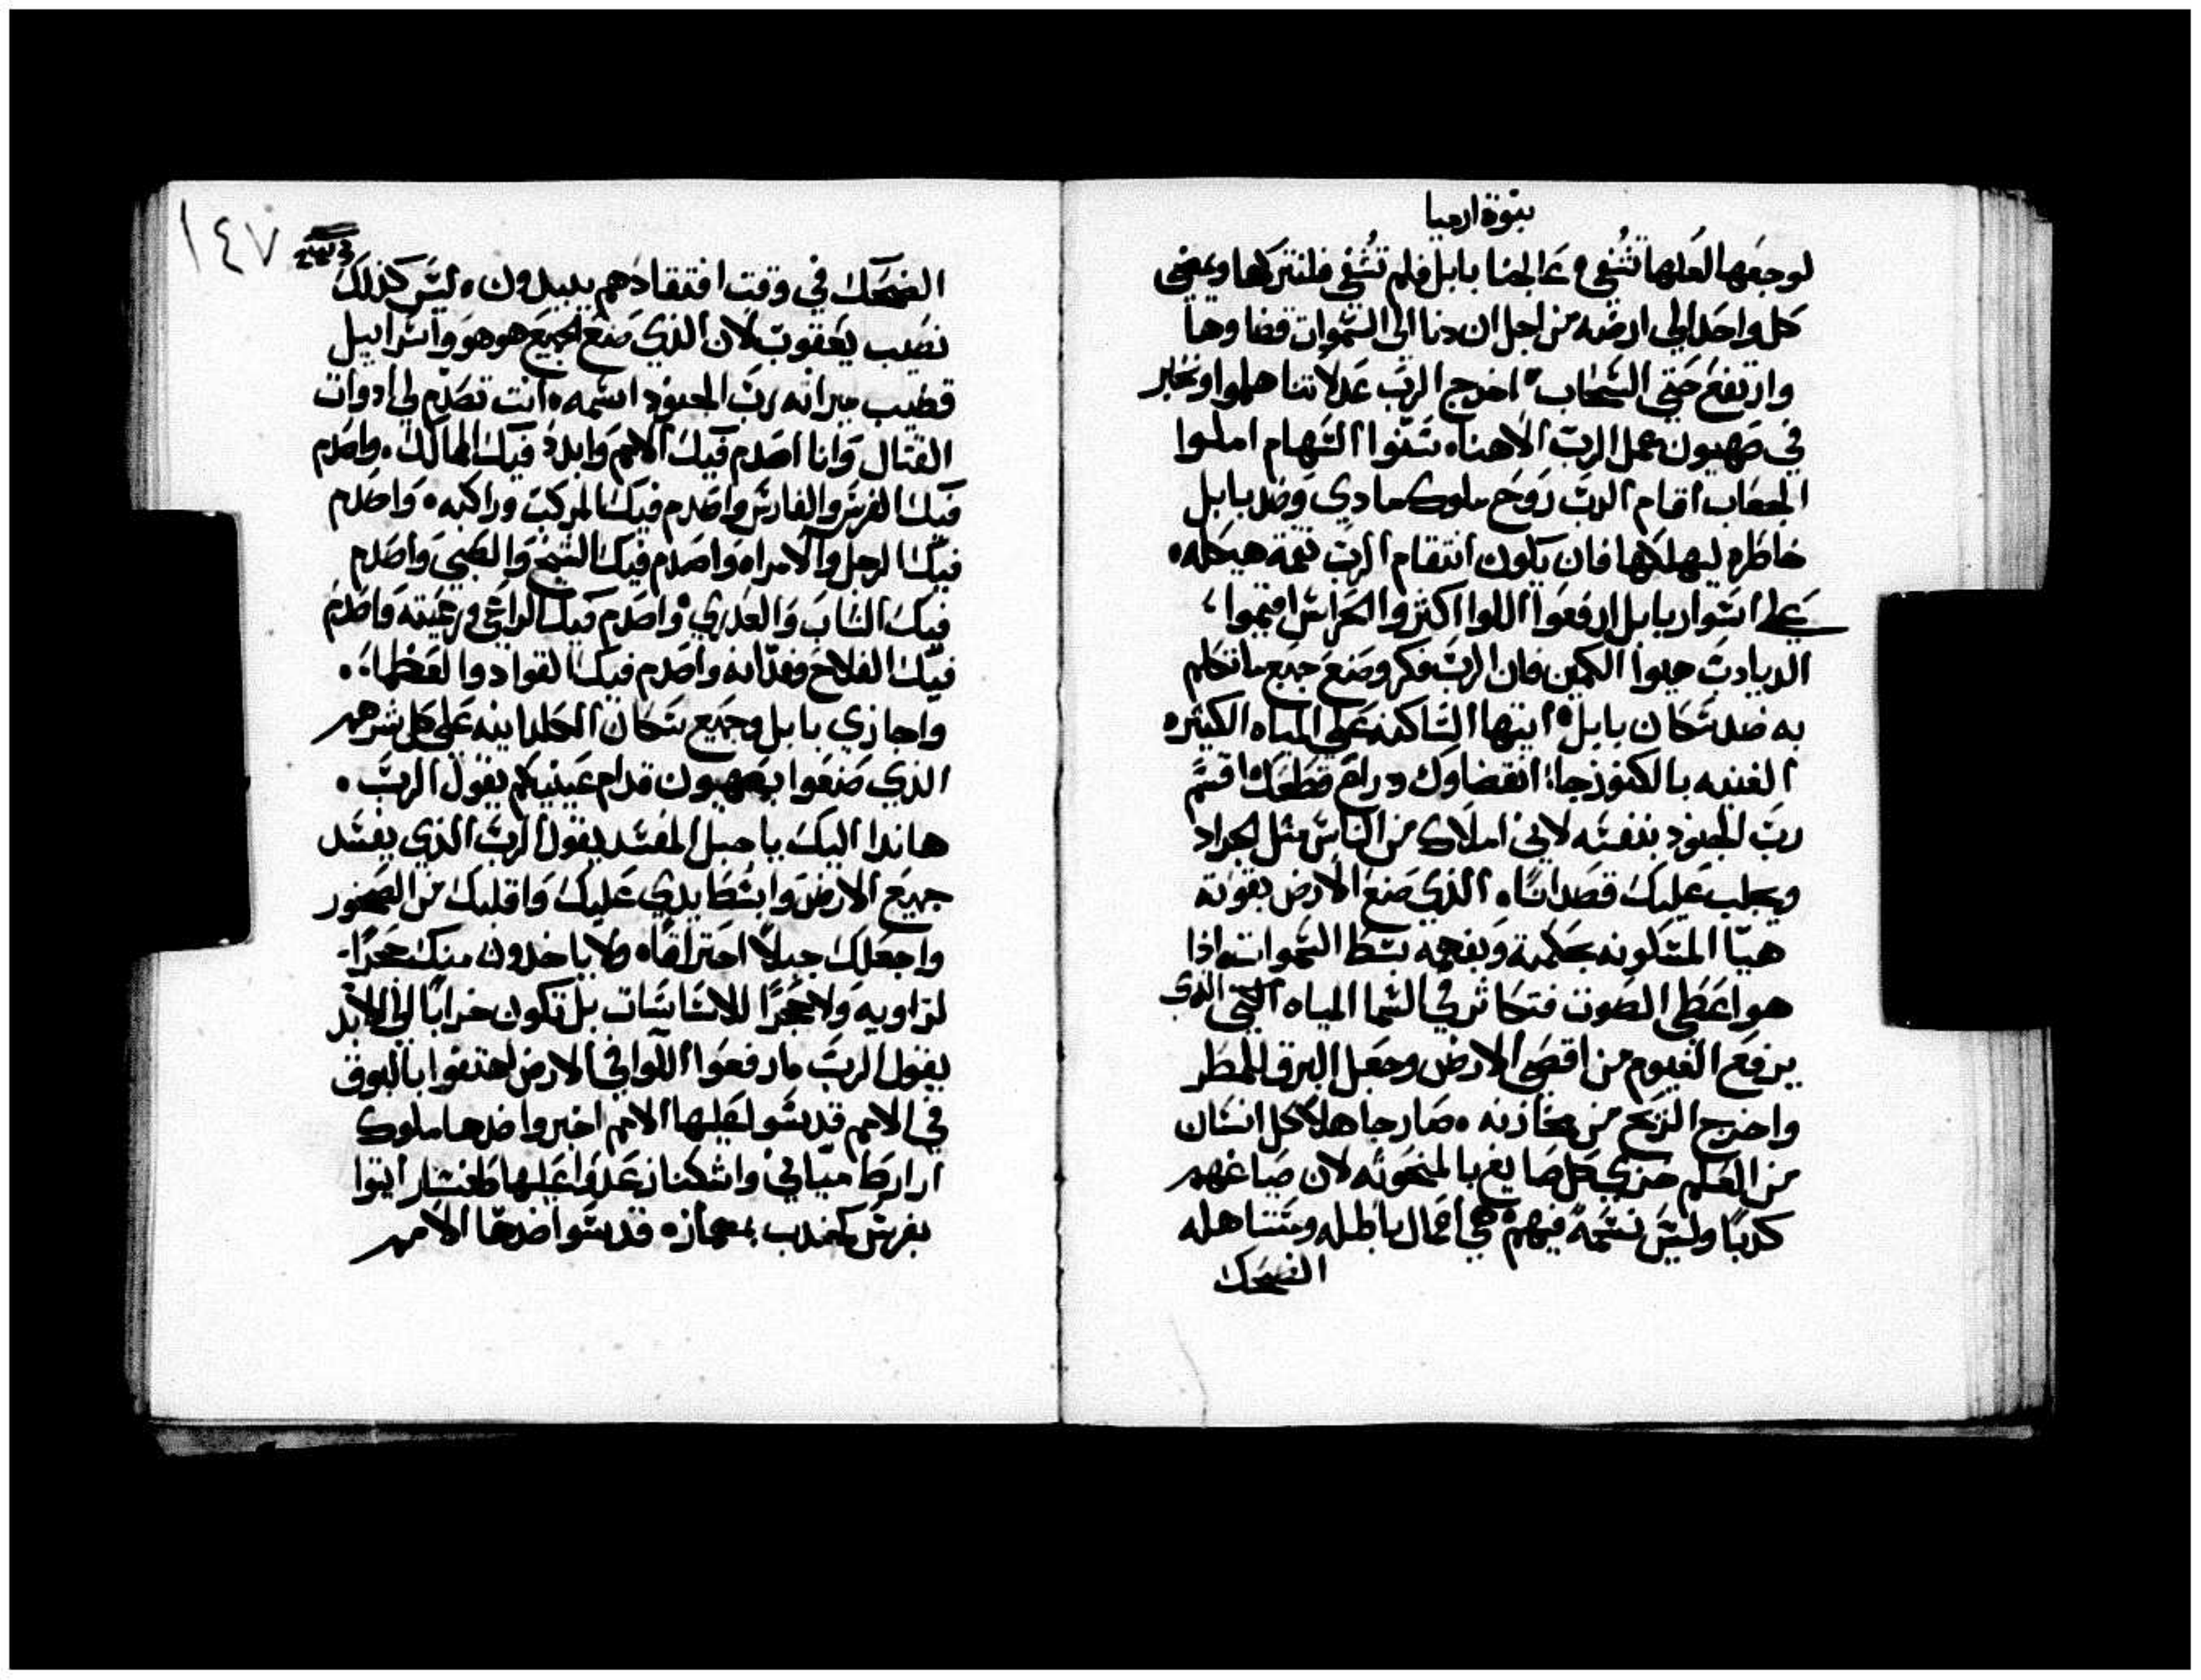 نبوة ارميا
لوجعها لعلها تُشفي ٩ عالجنا بابل فلم تُشفي فلنتركها ويمضي
كل واحد الي ارضه من اجل ان دنا الي السموات قضاوها
وارتفع حتي السحاب ١٠ اخرج الرب عدلاتنا هلموا ونخبر
في صهيون عمل الرب الاهنا ١١ سننوا السهام املوا
الجعاب اقام الرب روح ملوك مادي وضد بابل
خاطره ليهلكها فان يكون انتقام الرب نقمة هيكله ٥
علي اسوار بابل ارفعوا اللوا اكثروا الحراس اقيموا
الديادب هيوا الكمين فان الرب فكر وصنع جميع ما تكلم
به ضد سكان بابل ٥ ايتها الساكنه علي المياه الكثيره
الغنيه بالكنوز جا انقضاوك ودراع قطعك اقسم
رب الجنود بنفسه لاني املاك من الناس مثل الجراد
ويجلب عليك قصداسًا ٥ الذي صنع الارض بقوته
هيّا المسكونه بحكمته وبفهمه بسط السموات اذا
هو اعطي الصوت فتكاثر في السما المياه التي الذي
يرفع الغيوم من اقصي الارض وجعل البرق للمطر
واخرج الريح من مخازنه ٥ صار جاهلا كل انسان
من العلم خزي كل صايغ بالمنحوته لان صياغهم
كدبًا وليس نسمةً فيهم ٥ هي اعمال باطله ومستاهله
الضحك
١٤٧
الضحك في وقت افتقادهم يبيدون ٥ ليس كذلك
نصيب يعقوب لان الذي صنع الجميع هو هو واسراييل
قضيب ميراثه رب الجنود اسمه ٥ انت تصدم لي ادوات
القتال وانا اصدم فيك الامم وابدد فيك الممالك ٥ واصدم
فيك الفرس والفارس واصدم فيك المركب وراكبه ٥ واصدم
فيك الرجل والامراه واصدم فيك الشيخ والصبي واصدم
فيك الشاب والعدري ٥ واصدم فيك الراعي ورعيته واصدم
فيك الفلاح وفدّانه واصدم فيك القواد والعظما ٥
واجازي بابل وجميع سكان الكلدانيه علي كل شرهم
الذي صنعوا بصهيون قدام عينيكم يقول الرب ٥
هاندا اليك يا جبل المفسد يقول الرب الذي يفسد
جميع الارض وابسط يدي عليك واقلبك من الصخور
واجعلك جبلاً احتراقًا ٥ ولا ياخدون منك حجرًا
لزاويه ولا حجرًا للاساسات بل تكون خرابًا الي الابد
يقول الرب ٥ ارفعوا اللوا في الارض اهتفوا بالبوق
في الامم قدسوا عليها الامم اخبروا ضدها ملوك
اراراط ميّاني واشكناز عدوا عليها طفسار ايتوا
بفرس كجندب بمجازه قدسوا ضدها الامم